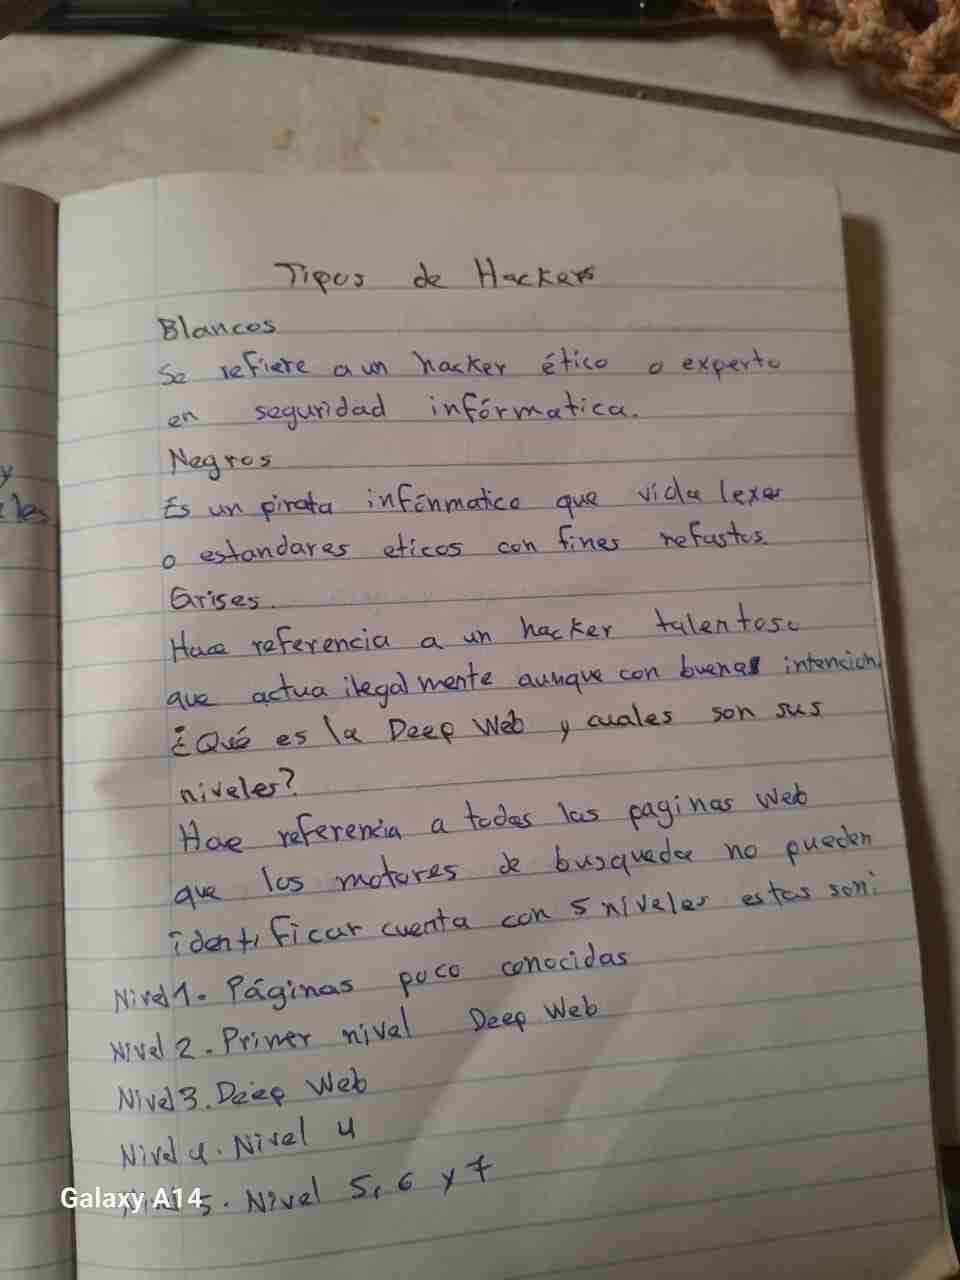 Tipos de Hackers
Blancos
Se refiere a un hacker ético o experto
en seguridad infórmatica.
Negros
Es un pirata infórmatico que vida lexes
o estandares eticos con fines nefastos.
Grises.
Hace referencia a un hacker talentoso
que actua ilegalmente aunque con buenas intencion
¿Qué es la Deep Web y cuales son sus
niveles?
Hace referencia a todas las paginas web
que los motores de busqueda no pueden
identificar cuenta con 5 niveles estas son:
Nivel 1. Páginas poco conocidas
Nivel 2. Primer nivel Deep Web
Nivel 3. Deep Web
Nivel 4. Nivel 4
Nivel 5. Nivel 5, 6 y 7
Galaxy A14